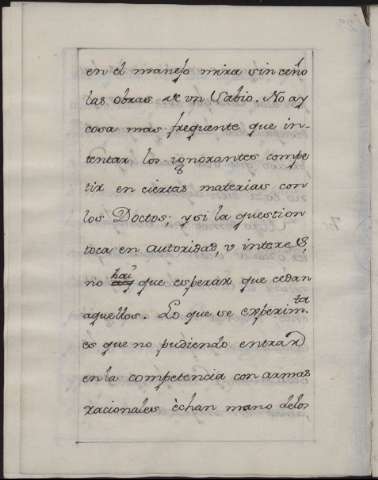 en el manejo mira sin ceño
las obras de un Sabio. No ay
cosa mas freqüente que in-
tentar los ignorantes compe
tir en ciertas materias con
los Doctos; y si la question
toca en autoridad, v interes,
no hai que esperar que cedan
aquellos. Lo que se experim.ta
es que no pudiendo entrar
en la competencia con armas
racionales èchan mano delos